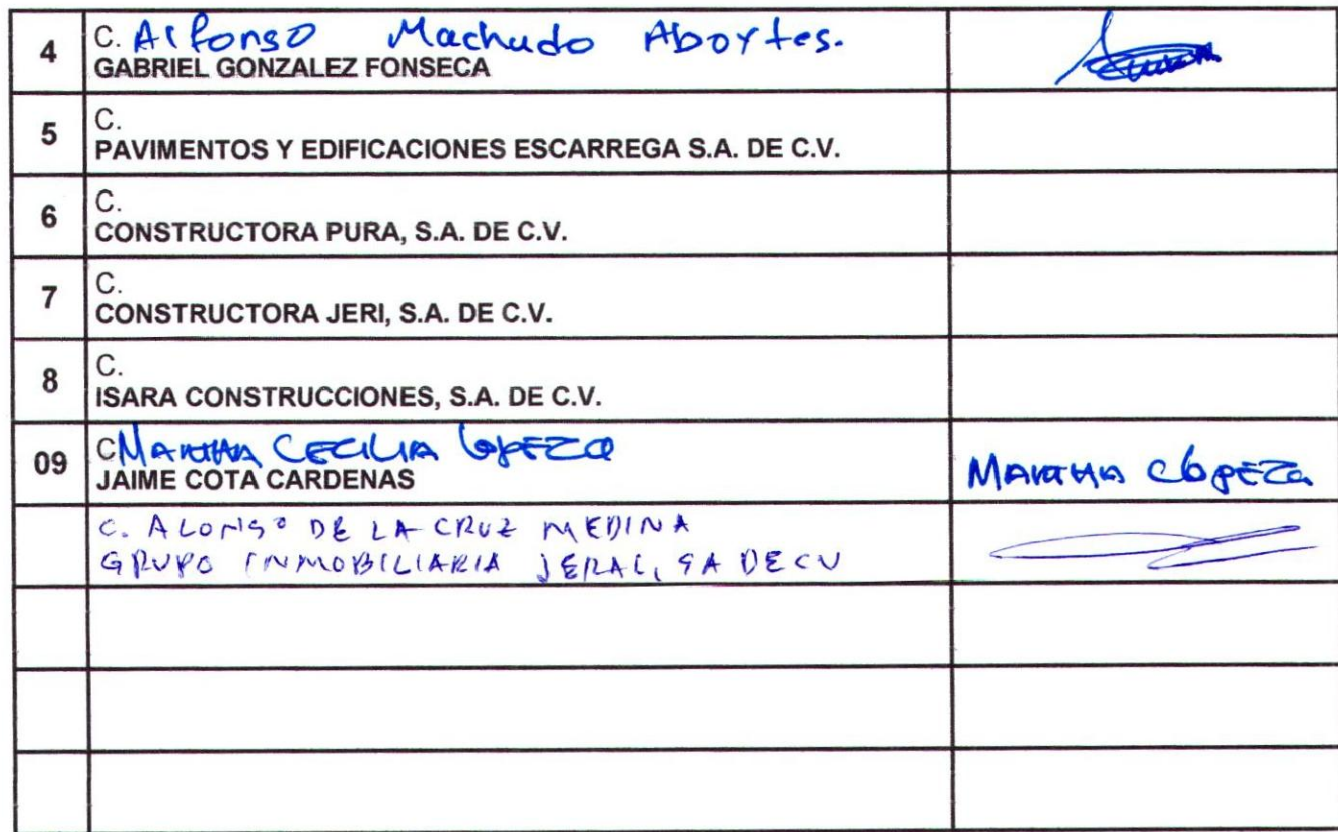 4 C. Alfonso Machudo Aboytes.
GABRIEL GONZALEZ FONSECA
5 C.
PAVIMENTOS Y EDIFICACIONES ESCARREGA S.A. DE C.V.
6 C.
CONSTRUCTORA PURA, S.A. DE C.V.
7 C.
CONSTRUCTORA JERI, S.A. DE C.V.
8 C.
ISARA CONSTRUCCIONES, S.A. DE C.V.
09 C MARTHA CECILIA
JAIME COTA CARDENAS
MARTHA
C. ALONSO DE LA CRUZ MEDINA
GRUPO INMOBILIARIA JERAL, SA DE CV